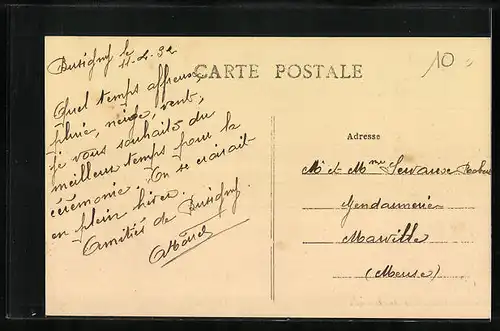 Busigny le
11-2-32
CARTE POSTALE
10
Quel temps affreux,
pluie, neige, vent,
je vous souhaite du
meilleur temps pour la
cérémonie. On se croirait
en plein hiver.
Amitiés de Busigny.
Adresse
Mr et Mme
Gendarmerie
Marville
(Meuse)